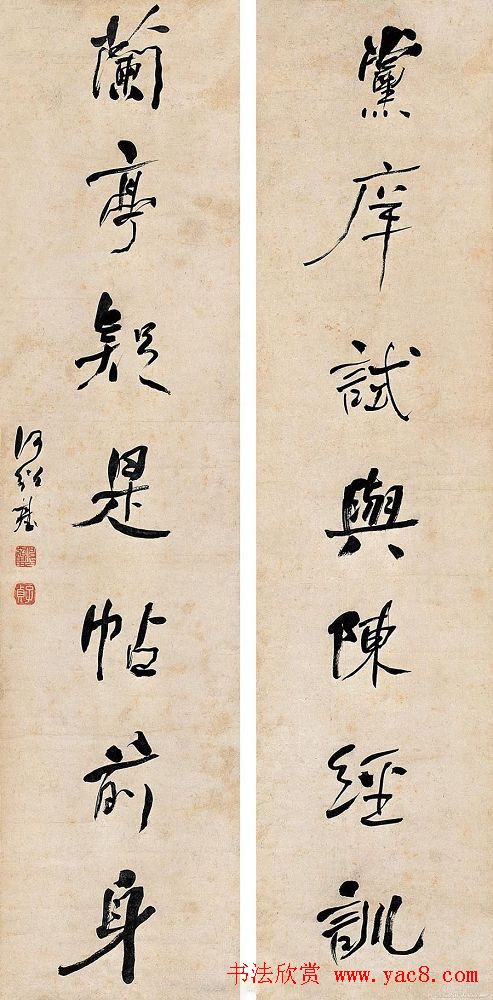 黨庠試與陳經訓
蘭亭疑是帖前身
何紹基
子貞
书法欣赏 www.yac8.com